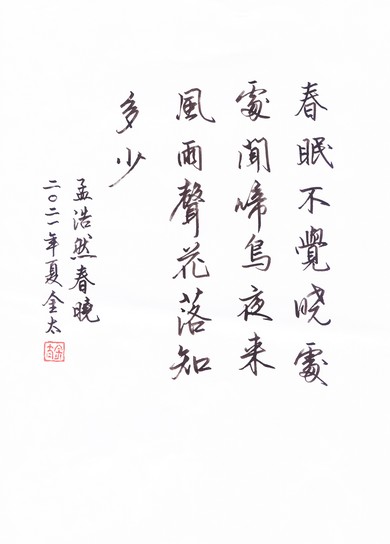 春眠不覺晓處
處聞啼鳥夜来
風雨聲花落知
多少
孟浩然春曉
二〇二一年夏金太